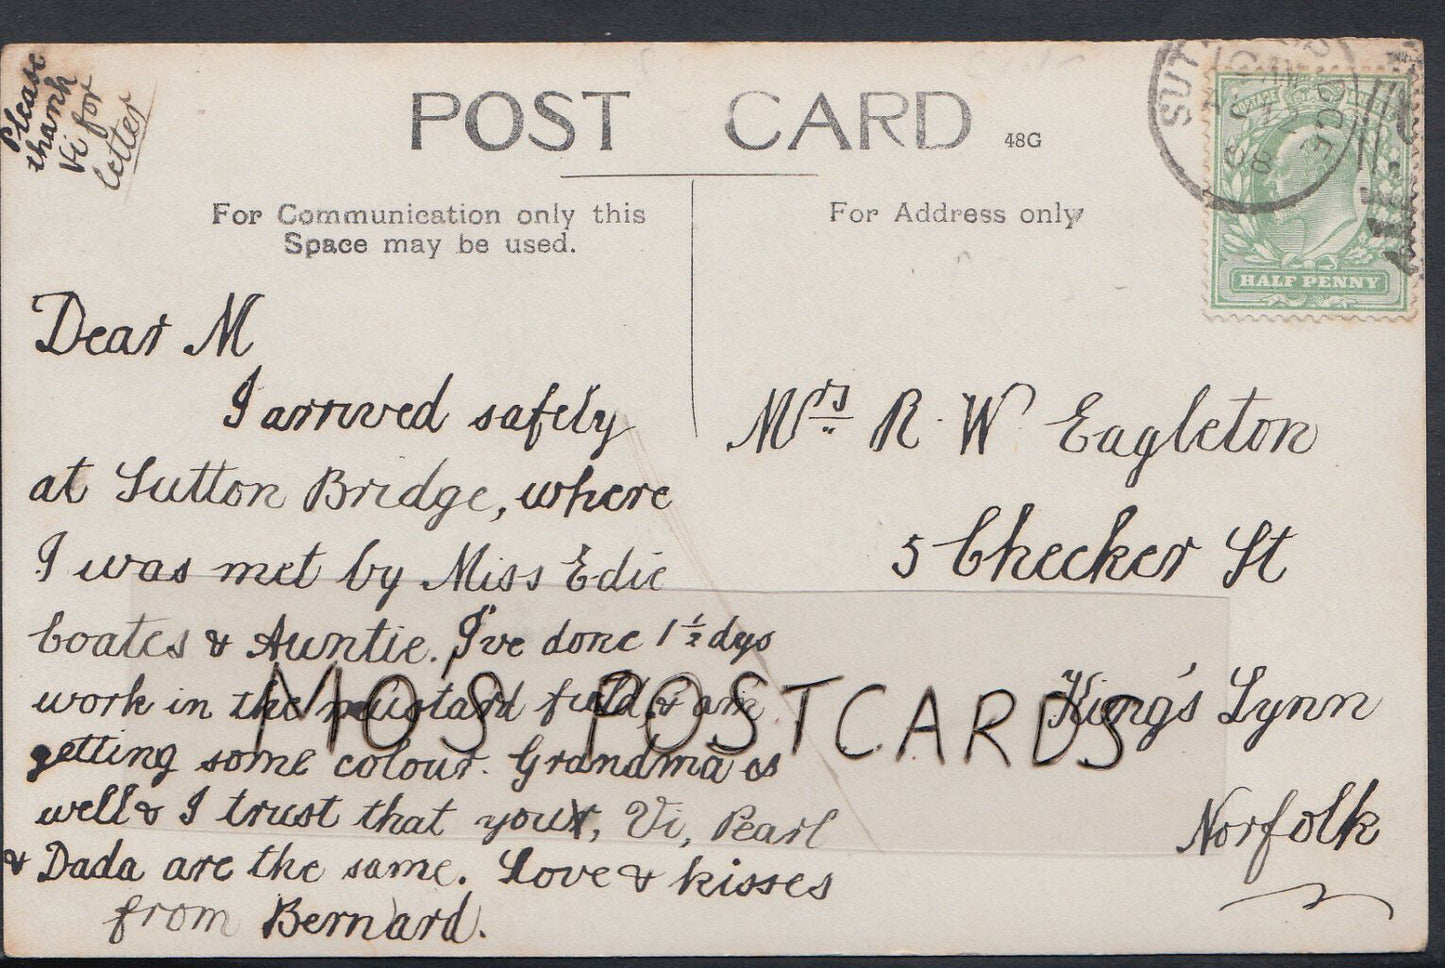 Please
thank
Vi for
letter
POST CARD 48G
For Communication only this
Space may be used.
For Address only
HALF PENNY
SUTTON BRIDGE
08
Dear M
I arrived safely
at Sutton Bridge, where
I was met by Miss Edie
Coates & Auntie. I've done 1½ dys
work in the mustard field, & am
getting some colour. Grandma is
well & I trust that you, Vi, Pearl
& Dada are the same. Love & kisses
from Bernard.
Mrs R. W Eagleton
5 Checker St
King's Lynn
Norfolk
MO'S POSTCARDS